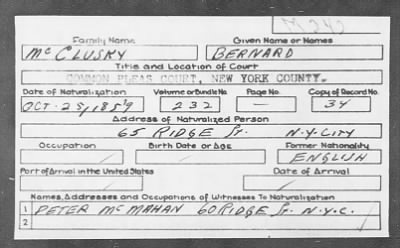 M242
Family Name Given Name or Names
McCLUSKY BERNARD
Title and Location of Court
COMMON PLEAS COURT, NEW YORK COUNTY.
Date of Naturalization Volume or Bundle No. Page No. Copy of Record No.
OCT. 25, 1859 232 — 34
Address of Naturalized Person
65 RIDGE St. N.Y. CITY
Occupation Birth Date or Age Former Nationality
ENGLISH
Port of Arrival in the United States Date of Arrival
Names, Addresses and Occupations of Witnesses To Naturalization
1 PETER McMAHAN 60 RIDGE St. N.Y.C.
2